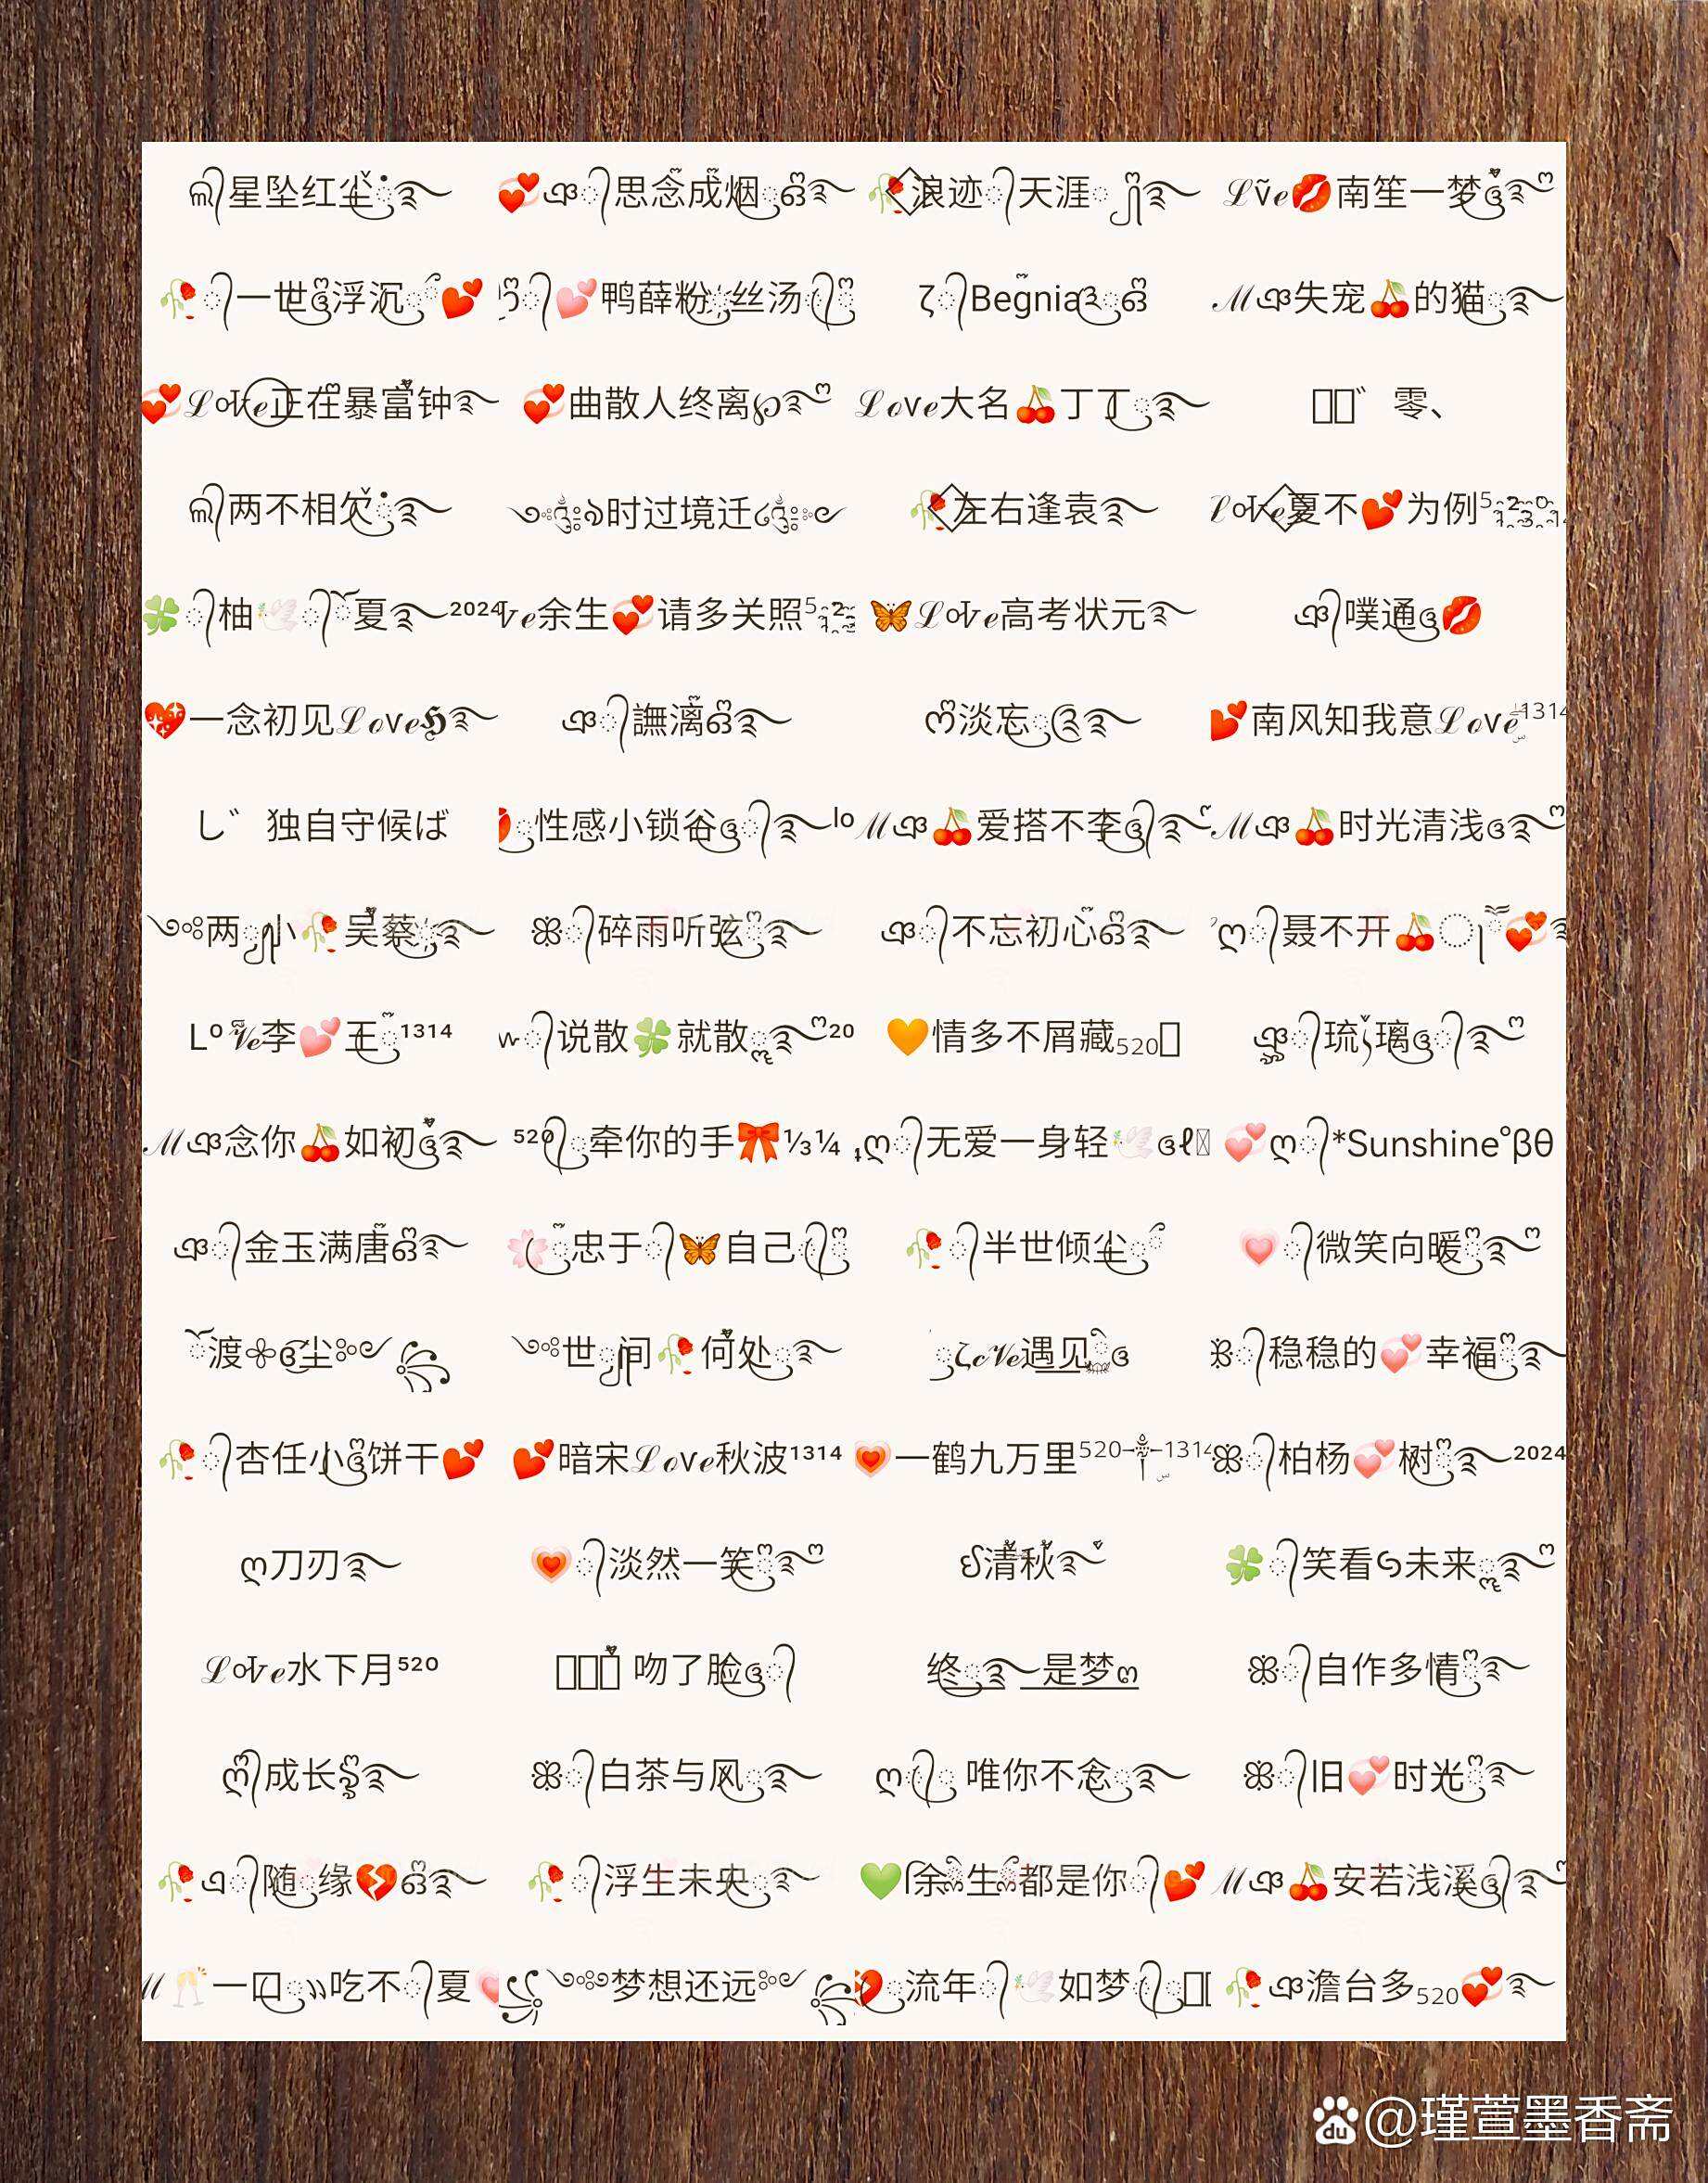 星坠红尘 思念成烟 浪迹天涯 Lve💋南笙一梦
一世浮沉💕 💕鸭薛粉丝汤 Begnia M失宠🍒的猫
Love正在暴富钟 曲散人终离 Love大名🍒丁丁 零、
两不相欠 时过境迁 左右逢袁 Love夏不💕为例
🍀柚🕊夏²⁰²⁴ ve余生💞请多关照 🦋Love高考状元 噗通💋
💖一念初见Love 譕漓 淡忘 💕南风知我意Love¹³¹⁴
し゛独自守候ば 性感小锁谷lo M🍒爱搭不李 M🍒时光清浅
两小🥀吴蔡 碎雨听弦 不忘初心 聂不开🍒💞
LºVe李💕王¹³¹⁴ 说散🍀就散²⁰ 🧡情多不屑藏₅₂₀ 琉璃
M念你🍒如初 ⁵²⁰牵你的手🎀⅓¼ 无爱一身轻🕊 💞*Sunshine°βθ
金玉满唐 🌸忠于🦋自己 🥀半世倾尘 💗微笑向暖
渡尘 世间🥀何处 遇见 稳稳的💞幸福
🥀杏任小饼干💕 💕暗宋Love秋波¹³¹⁴ 一鹤九万里⁵²⁰ ¹³¹⁴ 柏杨💞树²⁰²⁴
刀刃 淡然一笑 清秋 🍀笑看未来
Love水下月⁵²⁰ 吻了脸 终是梦 自作多情
成长 白茶与风 唯你不念 旧💞时光
🥀随缘💔 🥀浮生未央 💚余生都是你💕 M🍒安若浅溪
M🥂一口吃不夏 梦想还远 流年🕊如梦 🥀澹台多₅₂₀💞
@瑾萱墨香斋